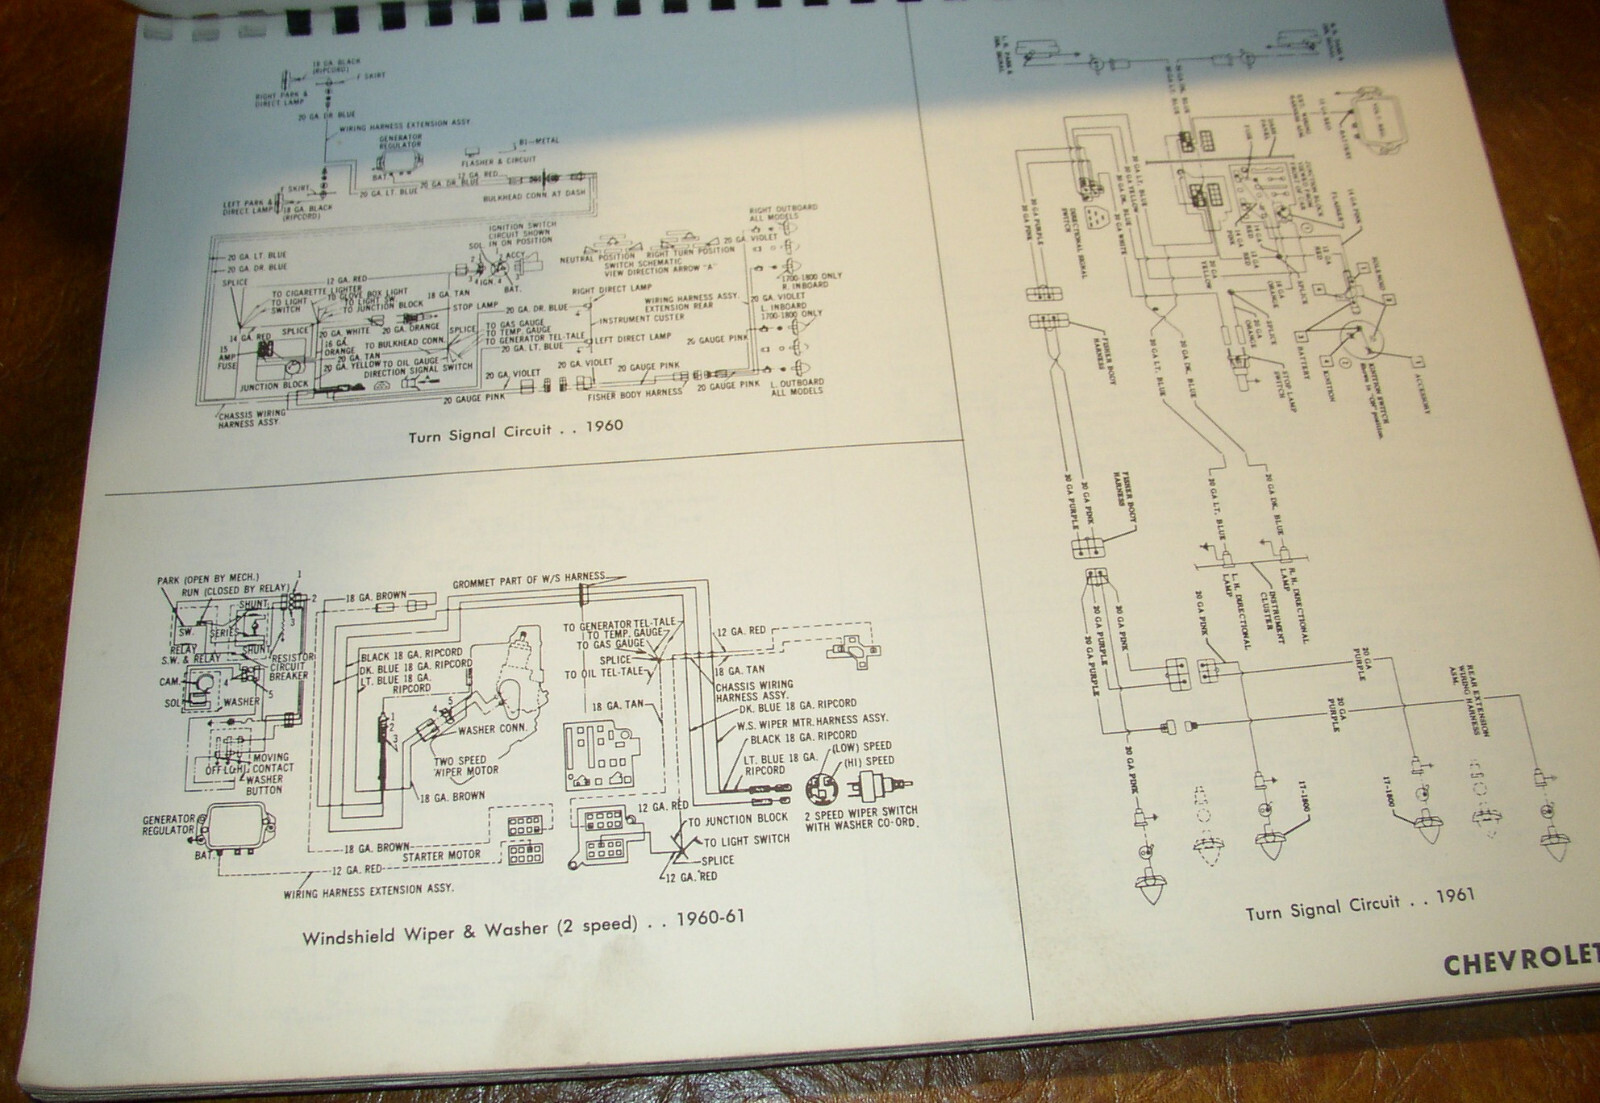 18 GA. BLACK
(RIPCORD)
F SKIRT
RIGHT PARK &
DIRECT LAMP
20 GA DK BLUE
WIRING HARNESS EXTENSION ASSY.
GENERATOR
REGULATOR
BAT.
BI-METAL
FLASHER & CIRCUIT
12 GA. RED
20 GA. DR. BLUE
20 GA. LT. BLUE
BULKHEAD CONN. AT DASH
F SKIRT
LEFT PARK &
DIRECT LAMP
18 GA. BLACK
(RIPCORD)
IGNITION SWITCH
CIRCUIT SHOWN
IN ON POSITION
SOL.
ACCY
IGN.
BAT.
NEUTRAL POSITION
RIGHT TURN POSITION
SWITCH SCHEMATIC
VIEW DIRECTION ARROW "A"
RIGHT OUTBOARD
ALL MODELS
20 GA. VIOLET
1700-1800 ONLY
R. INBOARD
20 GA. LT. BLUE
20 GA. DR. BLUE
SPLICE
12 GA. RED
TO CIGARETTE LIGHTER
TO GLOVE BOX LIGHT
TO LIGHT
SWITCH
TO LIGHT SW.
TO JUNCTION BLOCK
18 GA. TAN
STOP LAMP
20 GA. DR. BLUE
RIGHT DIRECT LAMP
WIRING HARNESS ASSY.
EXTENSION REAR
INSTRUMENT CUSTER
20 GA. VIOLET
L. INBOARD
1700-1800 ONLY
14 GA. RED
SPLICE
20 GA. WHITE
20 GA. ORANGE
SPLICE
TO GAS GAUGE
TO TEMP. GAUGE
TO GENERATOR TEL-TALE
20 GA. LT. BLUE
LEFT DIRECT LAMP
20 GAUGE PINK
15
AMP
FUSE
16 GA.
ORANGE
TO BULKHEAD CONN.
20 GA. TAN
20 GA. YELLOW
TO OIL GAUGE
DIRECTION SIGNAL SWITCH
JUNCTION BLOCK
20 GA. VIOLET
20 GA. VIOLET
20 GAUGE PINK
20 GAUGE PINK
20 GAUGE PINK
FISHER BODY HARNESS
L. OUTBOARD
ALL MODELS
CHASSIS WIRING
HARNESS ASSY.
Turn Signal Circuit . . 1960
PARK (OPEN BY MECH.)
RUN (CLOSED BY RELAY)
1
2
3
SHUNT
SW.
SERIES
RELAY
SHUNT
S.W. & RELAY
RESISTOR
CIRCUIT
BREAKER
CAM.
4
5
SOL.
WASHER
OFF LO HI
MOVING
CONTACT
WASHER
BUTTON
GENERATOR
REGULATOR
BAT.
18 GA. BROWN
GROMMET PART OF W/S HARNESS
BLACK 18 GA. RIPCORD
DK. BLUE 18 GA. RIPCORD
LT. BLUE 18 GA.
RIPCORD
1
2
3
4
5
WASHER CONN.
TWO SPEED
WIPER MOTOR
18 GA. BROWN
TO GENERATOR TEL-TALE
TO TEMP. GAUGE
TO GAS GAUGE
SPLICE
TO OIL TEL-TALE
12 GA. RED
18 GA. TAN
18 GA. TAN
CHASSIS WIRING
HARNESS ASSY.
DK. BLUE 18 GA. RIPCORD
W.S. WIPER MTR. HARNESS ASSY.
BLACK 18 GA. RIPCORD
LT. BLUE 18 GA.
RIPCORD
(LOW) SPEED
(HI) SPEED
2 SPEED WIPER SWITCH
WITH WASHER CO-ORD.
12 GA. RED
TO JUNCTION BLOCK
TO LIGHT SWITCH
SPLICE
12 GA. RED
18 GA. BROWN
STARTER MOTOR
12 GA. RED
WIRING HARNESS EXTENSION ASSY.
Windshield Wiper & Washer (2 speed) . . 1960-61
20 GA DK. BLUE
20 GA LT. BLUE
VOLT. REG.
BATTERY
12 GA RED
FUSE
JUNCTION BLOCK
FLASHER
16 GA PINK
20 GA LT. BLUE
20 GA YELLOW
20 GA DK. BLUE
20 GA WHITE
20 GA PURPLE
20 GA PINK
DIRECTIONAL SIGNAL
SWITCH
20 GA
YELLOW
SPLICE
SPLICE
SOLENOID
STOP LAMP
SWITCH
BATTERY
IGNITION
IGNITION SWITCH
Shown in "ON" position.
ACCESSORY
FISHER BODY
HARNESS
20 GA LT. BLUE
20 GA DK. BLUE
FISHER BODY
HARNESS
20 GA PINK
20 GA PURPLE
20 GA LT. BLUE
20 GA DK. BLUE
L. H. DIRECTIONAL
LAMP
INSTRUMENT
CLUSTER
R. H. DIRECTIONAL
LAMP
20 GA PINK
20 GA PURPLE
20 GA PURPLE
20 GA PINK
20 GA
PURPLE
20 GA
PURPLE
REAR EXTENSION
WIRING HARNESS
ASM.
20 GA PINK
17-1800
17-1800
Turn Signal Circuit . . 1961
CHEVROLET